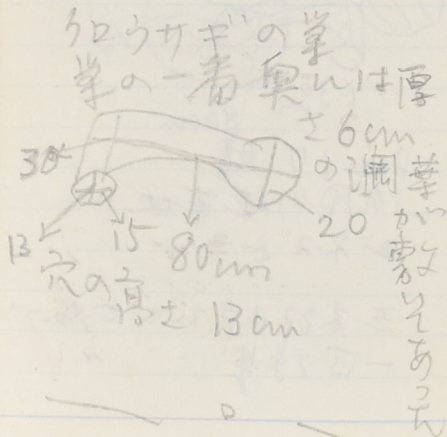 クロウサギの巣
巣の一番奥には厚
さ6cm
の濶葉が敷いてあった
30
13
15
80cm
20
穴の高さ 13cm